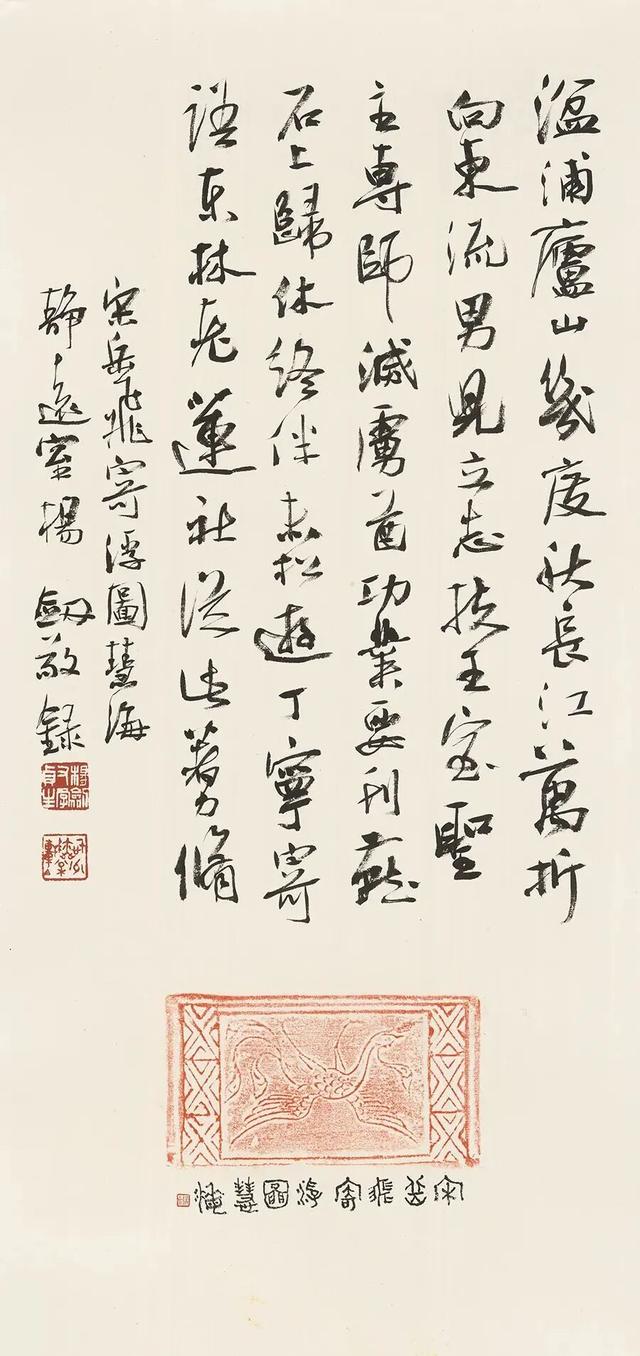 湓浦廬山幾度秋長江萬折
向東流男兒立志扶王室聖
主專師滅虜酋功業要刊燕
石上歸休終伴赤松遊丁寧寄
語東林老蓮社從此著力脩
宋岳飛寄浮圖慧海
靜遠室楊劔敬錄
宋岳飛寄浮圖慧海